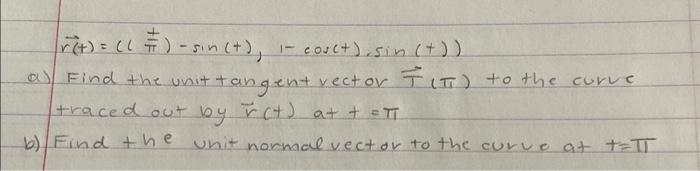 r⃗(t) = (( t/π ) - sin(t), 1- cos(t), sin(t))
a) Find the unit tangent vector T⃗(π) to the curve
traced out by r⃗(t) at t = π
b) Find the unit normal vector to the curve at t=π